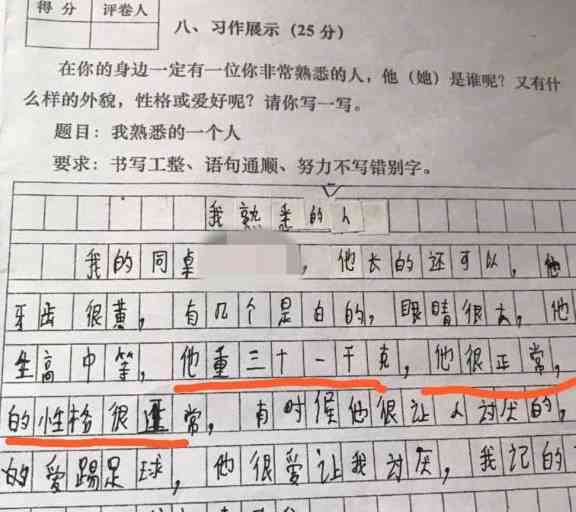 得分 评卷人
八、习作展示（25分）
在你的身边一定有一位你非常熟悉的人，他（她）是谁呢？又有什
么样的外貌，性格或爱好呢？请你写一写。
题目：我熟悉的一个人
要求：书写工整、语句通顺、努力不写错别字。
我熟悉的人
我的同桌，他长的还可以，他
牙齿很黄，有几个是白的，眼睛很大，他
生高中等，他重三十一千克，他很正常，
的性格很正常，有时候他很让人讨厌的，
的爱踢足球，他很爱让我讨厌，我记的